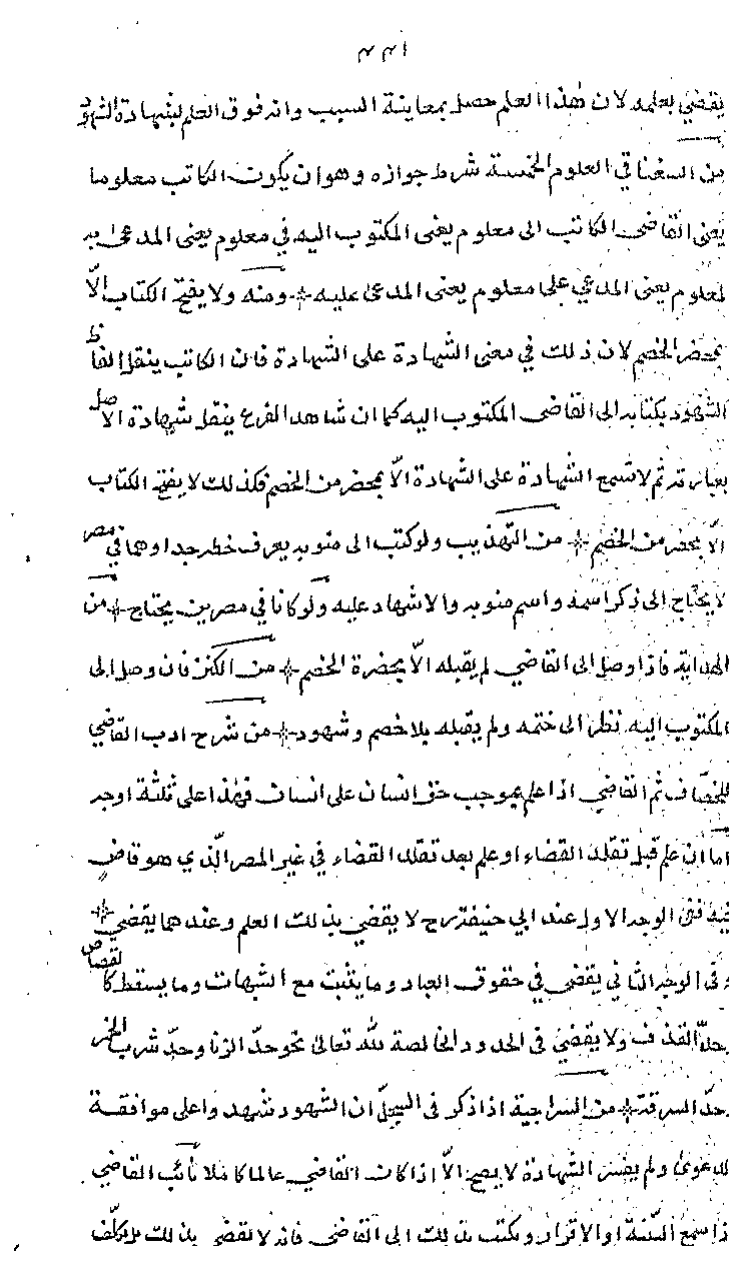 يقضي بعلمه لان هذا العلم حصل بمعاينة السبب وانه فوق العلم بشهادة الشهود
من السغناقي العلوم الخمسة شرط جوازه وهو ان يكون الكاتب معلوما
يعنى القاضى الكاتب الى معلوم يعنى المكتوب اليه في معلوم يعنى المدعى به
لمعلوم يعنى المدعي على معلوم يعنى المدعى عليه ومنه ولا يفتح الكتاب الّا
بمحضر الخصم لان ذلك في معنى الشهادة على الشهادة فان الكاتب ينقل الفاظ
الشهود بكتابه الى القاضى المكتوب اليه كما ان شاهد الفرع ينقل شهادة الاصل
بعبارته ثم لا تسمع الشهادة على الشهادة الّا بمحضر من الخصم فكذلك لا يفتح الكتاب
الّا بمحضر من الخصم من التهذيب ولو كتب الى منوبه يعرف خطه جدا وهما في مصر
لا يحتاج الى ذكر اسمه واسم منوبه والاشهاد عليه ولو كانا في مصرين يحتاج من
الهداية فاذا وصل الى القاضي لم يقبله الّا بحضرة الخصم من الكنز فان وصل الى
المكتوب اليه نظر الى ختمه ولم يقبله بلا خصم وشهود من شرح ادب القاضي
للخصّاف ثم القاضي اذا علم بموجب حق انسان على انسان فهذا على ثلثة اوجه
امّا ان علم قبل تقلد القضاء او علم بعد تقلد القضاء في غير المصر الّذي هو قاض
فيه ففى الوجه الاول عند ابي حنيفة رح لا يقضي بذلك العلم وعندهما يقضي
وفى الوجه الثاني يقضي في حقوق العباد وما يثبت مع الشبهات وما يسقط كالقصاص
وحدّ القذف ولا يقضي فى الحدود الخالصة لله تعالى نحو حدّ الزنا وحدّ شرب الخمر
وحدّ السرقة من السراجية اذا ذكر فى السجلّ ان الشهود شهدوا على موافقة
الدعوى ولم يفسر الشهادة لا يصح الّا اذا كان القاضي عالما كاملا نائب القاضي
اذا سمع البيّنة او الاقرار ويكتب بذلك الى القاضي فانه لا يقضي بذلك بل يكلّف